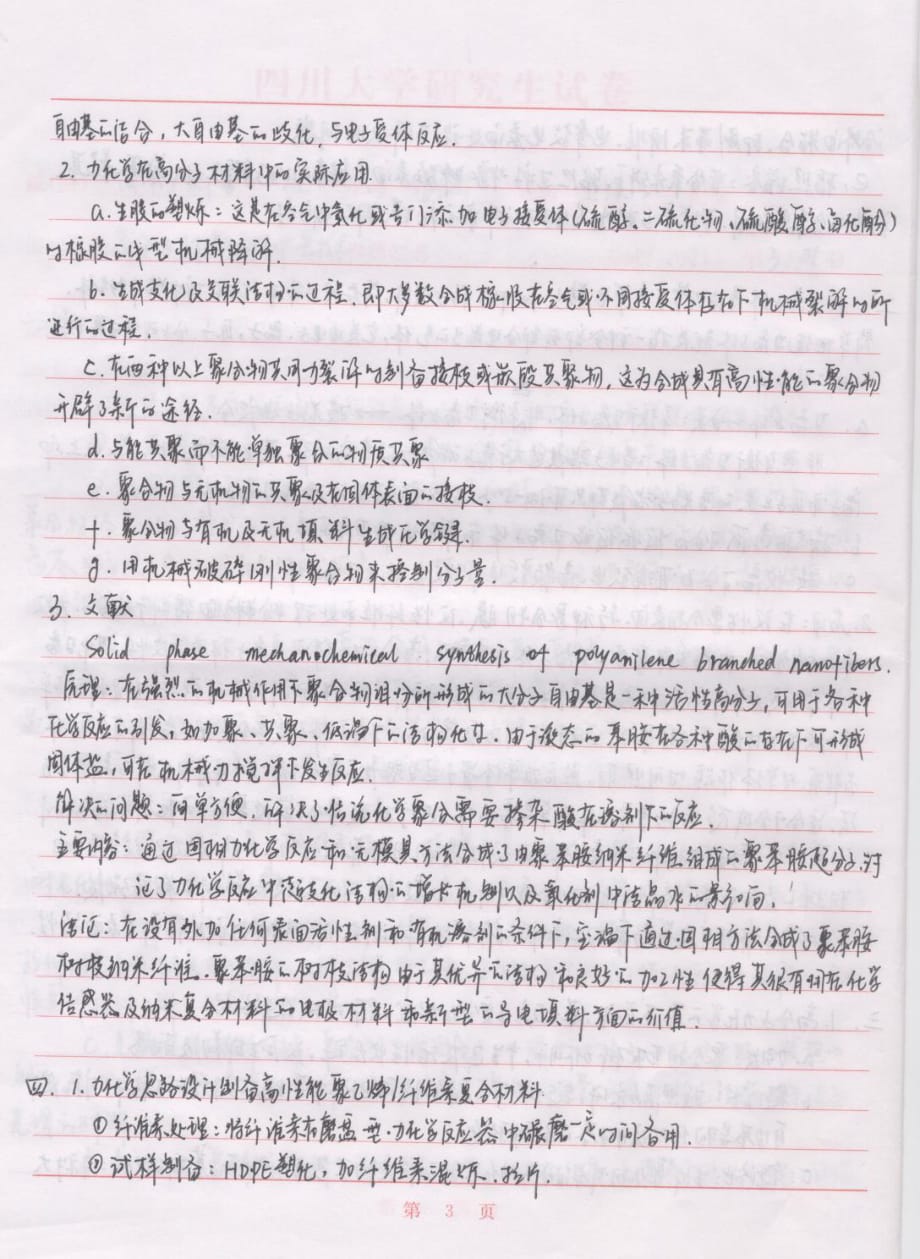 四川大学研究生试卷
自由基的结合,大自由基的歧化,与电子受体反应.
2.力化学在高分子材料中的实际应用.
a.生胶的塑炼:这是在空气中氧化或专门添加电子接受体(硫醇、二硫化物、硫酸酯、卤化酚)
时橡胶的线型机械降解.
b.生成支化及交联结构的过程,即大多数合成橡胶在空气或不同接受体存在下机械裂解时所
进行的过程.
c.在两种以上聚合物共同力裂解时制备接枝或嵌段共聚物,这为合成具有高性能的聚合物
开辟了新的途径.
d.与能共聚而不能单独聚合的物质共聚
e.聚合物与无机物的共聚及在固体表面的接枝.
f.聚合物与有机及无机填料生成化学键.
g.用机械破碎刚性聚合物来控制分子量.
3.文献
Solid phase mechanochemical synthesis of polyanilene branched nanofibers.
原理:在强烈的机械作用下聚合物组分所形成的大分子自由基是一种活性高分子,可用于各种
化学反应的引发,如加聚、共聚、低温下的结构化等.由于液态的苯胺在各种酸的存在下可形成
固体盐,可在机械力搅拌下发生反应.
解决的问题:简单方便,解决了传统化学聚合需要掺杂酸在溶剂下的反应
主要内容:通过固相力化学反应和无模具方法合成了由聚苯胺纳米纤维组成的聚苯胺超分子,讨
论了力化学反应中及支化结构的增长机制以及氧化剂中结晶水的影响.
结论:在没有外加任何表面活性剂和有机溶剂的条件下,室温下通过固相方法合成了聚苯胺
树枝纳米纤维.聚苯胺的树枝结构由于其优异的结构和良好的加工性使得其很有用在化学
传感器及纳米复合材料的电极材料和新型的导电填料方面的价值.
四.1.力化学思路设计制备高性能聚乙烯/纤维素复合材料
①纤维素处理:将纤维素在磨盘型力化学反应器中碾磨一定时间备用.
②试样制备:HDPE塑化,加纤维素混炼.拉片.
第 3 页